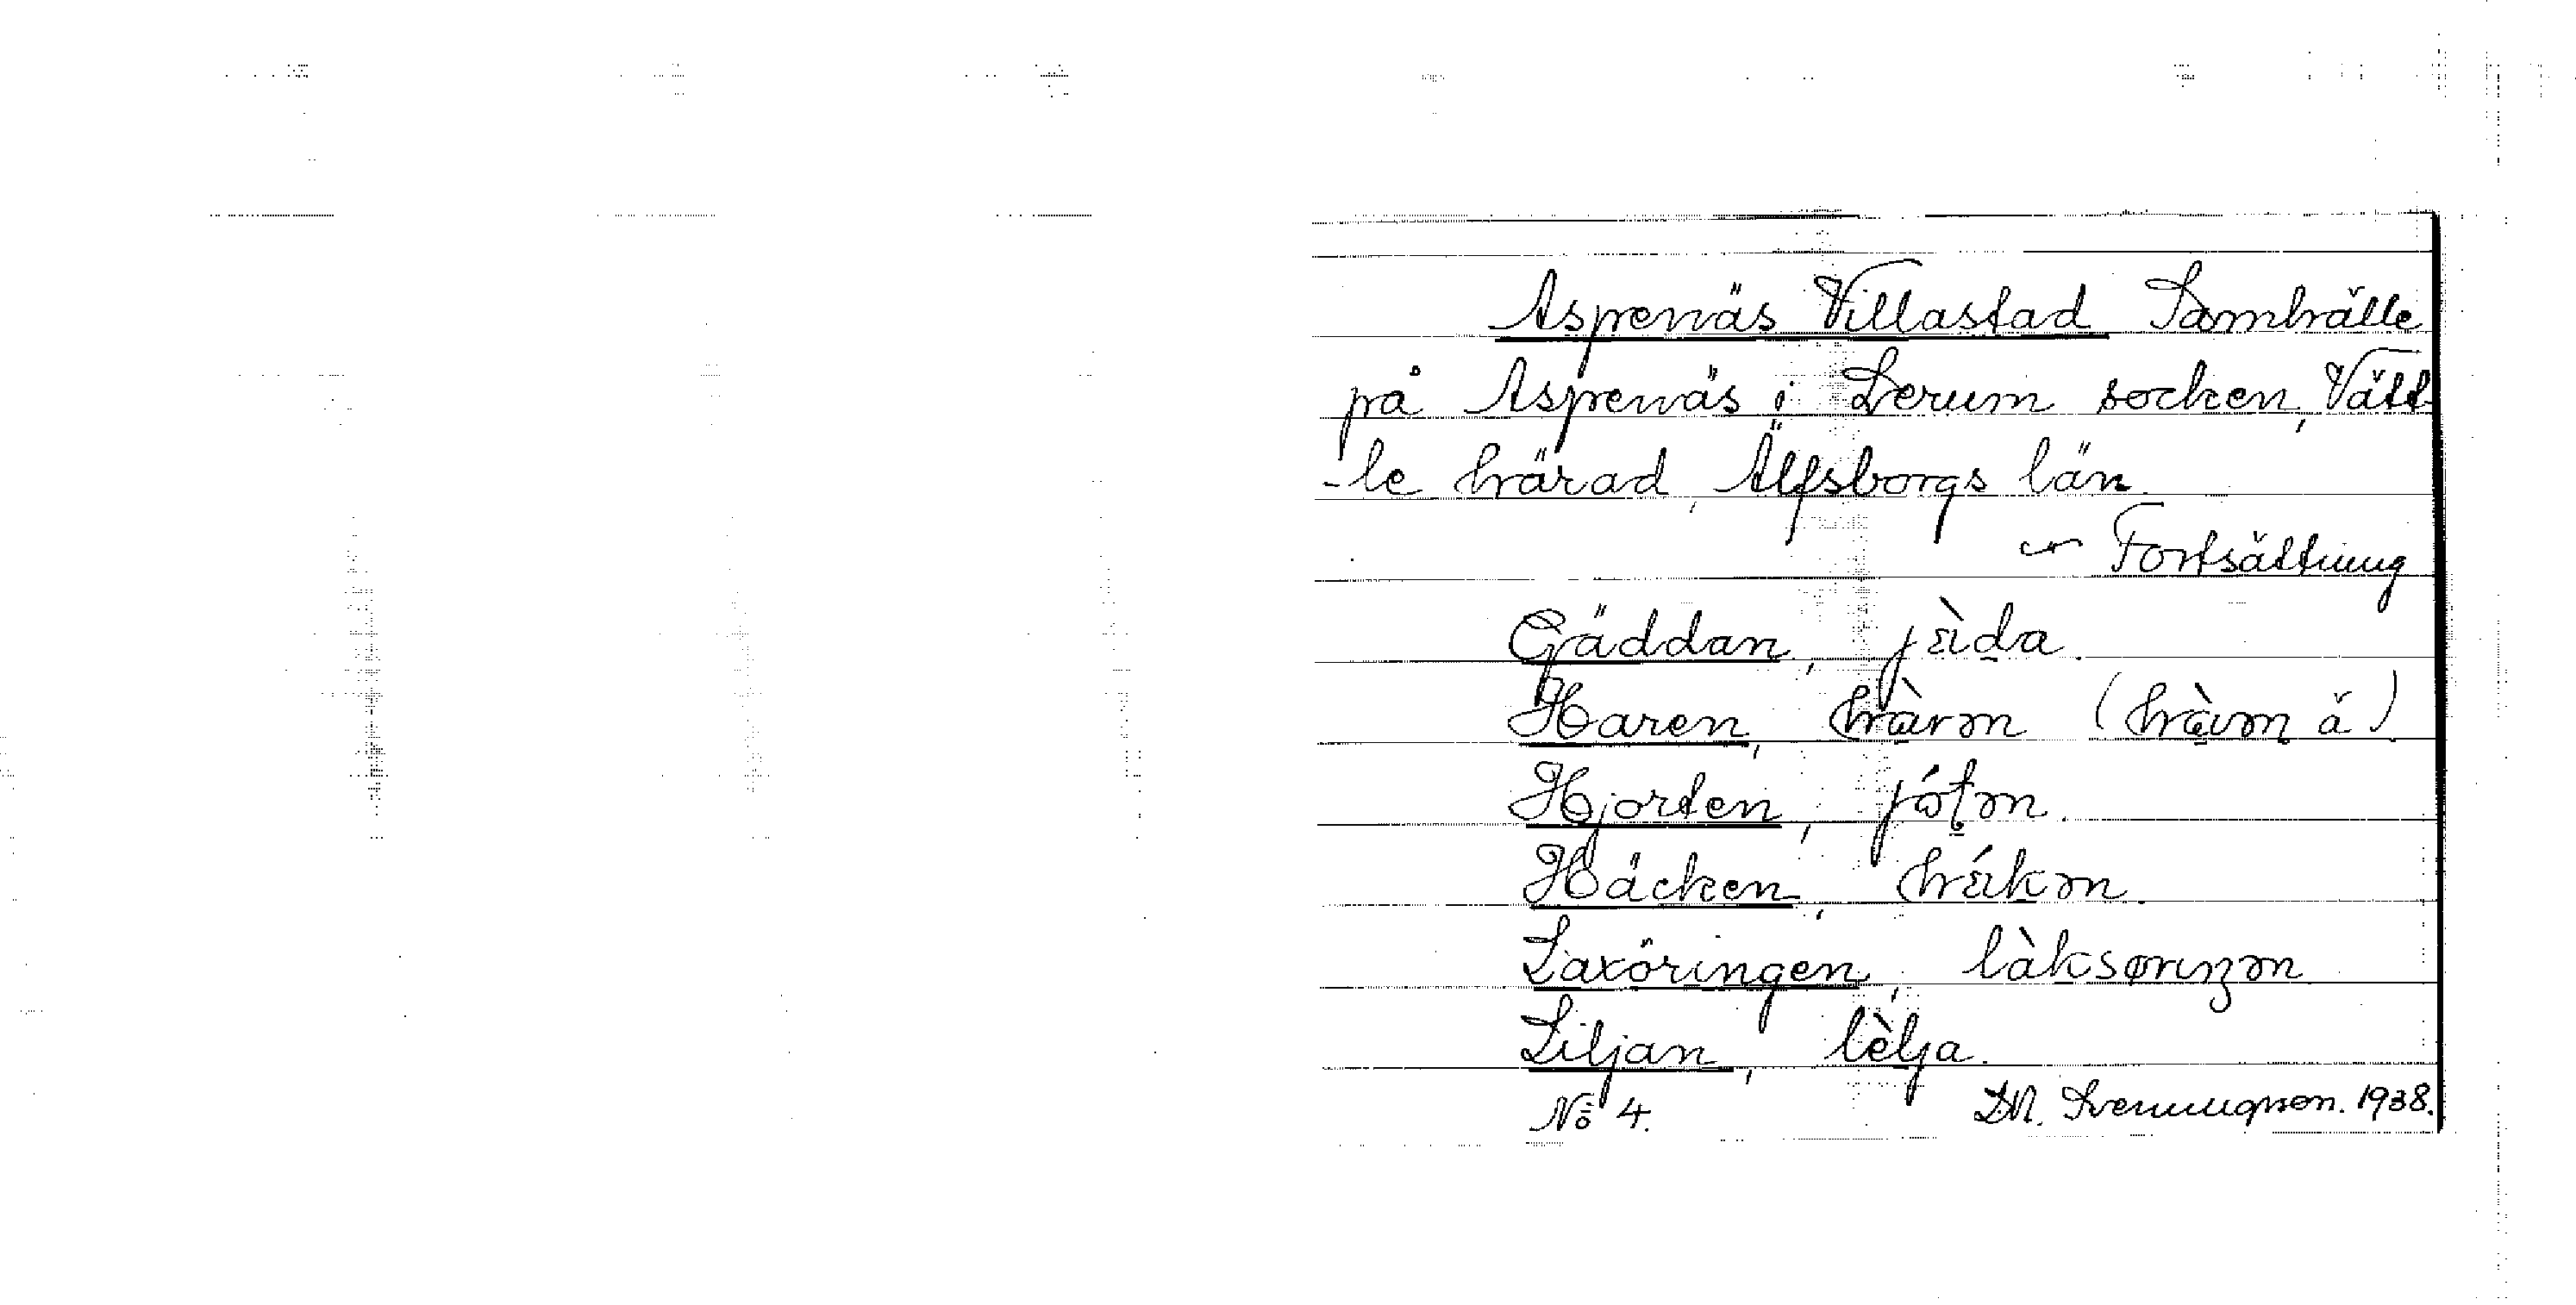 Aspenäs Villastad Samhälle
på Aspenäs i Lerum socken, Vätt
-le härad, Älfsborgs län.
Fortsättning
Gäddan, jæ̀da.
Haren, hàrən (hàrən ä).
Hjorten, jóʈən.
Häcken, hǽkən.
Laxöringen, làksørɩŋən
Liljan, lèlja.
No 4. D.N. Svenungsson. 1938.